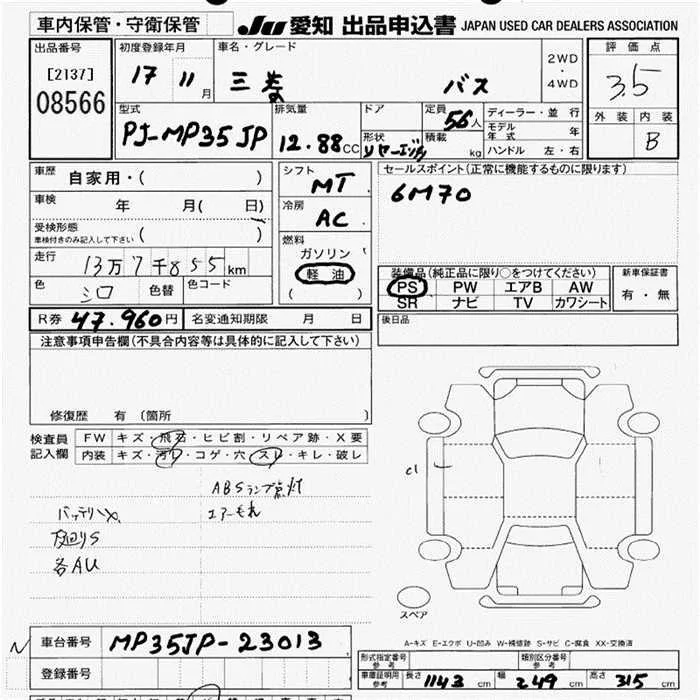 車内保管・守衛保管 JU 愛知 出品申込書 JAPAN USED CAR DEALERS ASSOCIATION
出品番号 初度登録年月 車名・グレード 評価点
[2137] 17 11月 三菱 バス 2WD・4WD 3.5
08566
型式 排気量 ドア 定員 56人 ディーラー・並行 外装 内装
PJ-MP35JP 12.88CC 形状 積載 kg モデル年式 年 B
ハンドル 左・右
車歴 自家用・( ) シフト MT セールスポイント(正常に機能するものに限ります)
車検 年 月( 日) 冷房 AC 6M70
受検形態 車検付きのみ記入して下さい ( ) 燃料
走行 13万7千855km ガソリン
色 シロ 色替 色コード 軽油 ( )
装備品(純正品に限り○をつけてください) 新車保証書
PS PW エアB AW 有・無
SR ナビ TV カワシート
R券 47.960円 名変通知期限 月 日 後日品
注意事項申告欄(不具合内容等は具体的に記入して下さい)
修復歴 有 (箇所
検査員記入欄 FW キズ・飛石・ヒビ割・リペア跡・X要
内装 キズ・汚レ・コゲ・穴・スレ・キレ・破レ
ABSランプ点灯
バッテリーX エアーもれ
各AU
スペア
A-キズ E-エクボ U-凹み W-補修跡 S-サビ C-腐食 XX-交換済
車台番号 MP35JP-23013
登録番号
形式指定番号 参考 類別区分番号 参考
車庫証明用 参考 長さ 1143 cm 幅 249 cm 高さ 315 cm